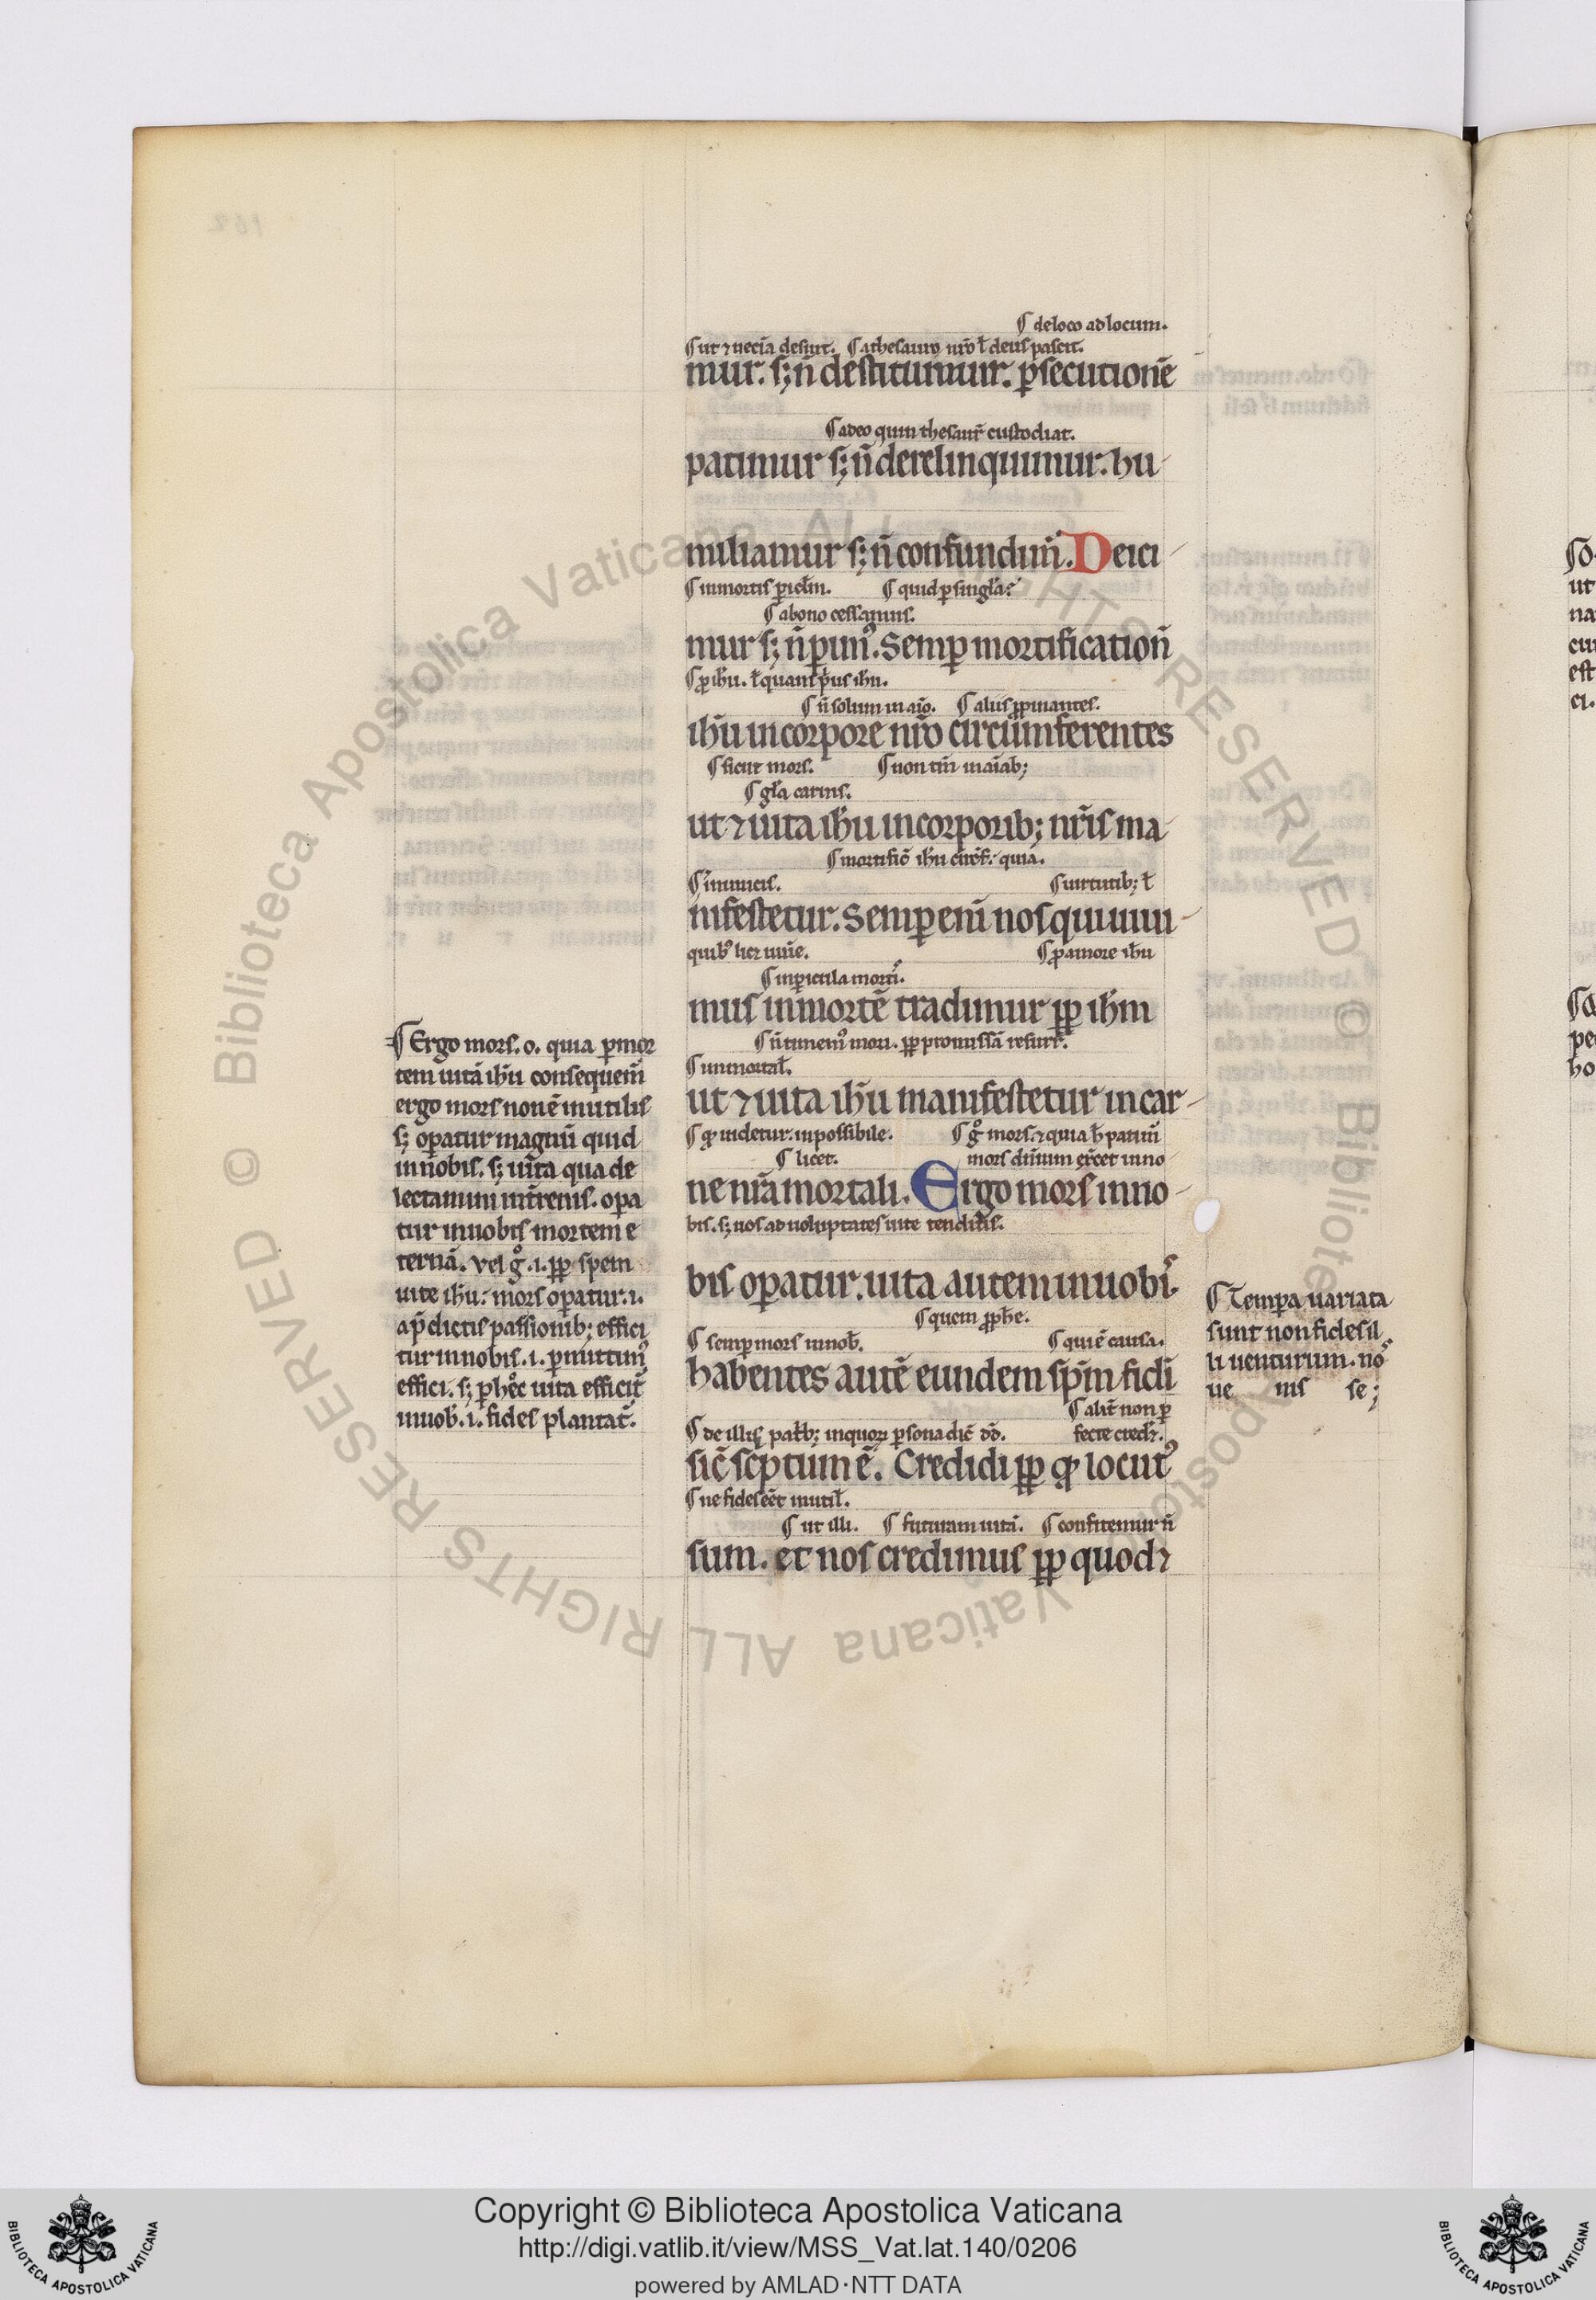 ¶ deloco adlocum.
¶ ut ⁊ necĩa desint. ¶ athesauro nr̃o ł deus pascit.
mur. s; ñ destituimur. p̲secutionẽ
¶ adeo qui in thesaur̃ custodiat.
patimur s; ñ derelinquimur. hu
miliamur s; ñ confundim̃. Deici
¶ inmortis pic̃lm. ¶ quid p̲ singl̃a?
¶ abono cessamus.
mur s; ñ p̲im᷒. Semp̲ mortification̄
¶ ꝓ ihũ. ł quam p̃us ihũ.
¶ ñ solum in aĩo. ¶ aliis ꝓpinantes.
ihũ incorpore nr̃o circũmferentes
¶ sicut mors. ¶ non tm̃ in aĩab;
¶ gl̃a carnis.
ut ⁊ uita ihũ incorporib; nr̃is ma
¶ mortific̃ ihũ circ̃f. quia.
¶ inimicis. ¶ uirtutib; ł
nifestetur. Semp̲ enĩ nos qui uiui
quib᷒ licz uiu̾e. ¶ ꝓ amore ihũ
¶ inp̲icula mortĩs.
mus inmortẽ tradimur ꝓp ihm̃
¶ ñ timem᷒ mori. ꝓp promissã resurr̃.
¶ inmortal̃.
ut ⁊ uita ihũ manifestetur in car
¶ qđ uidetur inpossibile. ¶ g̊ mors. ⁊ quia h̃ patim̃
¶ licet. mors dñium exercet inno
ne nr̃a mortali. Ergo mors inno
bis. s; uos ad uoluptates uite tenditis.
bis op̲atur. uita autem in uobis.
¶ quem ꝓph̃e.
¶ semp̲ mors in nob̃. ¶ qui ẽ causa.
habentes autẽ eundem sp̃m fidĩ
¶ alit̃ non p̲
¶ de illis patb̃; in quor̃ p̲sona dic̃ dd̃. fecte cred̃r.
sic̃ sc̃ptum ẽ. Credidi ꝓp qđ locut᷒
¶ ne fides eẽt inutil̃.
¶ ut illi. ¶ futuram uitã. ¶ confitemur ñ
sum. et nos credimus ꝓp quod ⁊
¶ Ergo mors. o. quia p̲ mor
tem uitã ihũ consequem̃
ergo mors non ẽ inutilis
s; op̲atur magnũ quid
in nobis. s; uita qua de
lectamini int̃renis. op̲a
tur in uobis mortem e
ternã. vel g̊. i. ꝓp spem
uite ihũ. mors op̲atur. i.
ap̃dictis passionib; effici
tur in nobis. i. p̲mittim᷒
effici. s; p̲ hoc uita efficit̃
in uob̃. i. fides plantat̃.
¶ Temp̲a uariata
sunt non fides il
li uenturum. nos
ue nis se;
Copyright © Biblioteca Apostolica Vaticana
http://digi.vatlib.it/view/MSS_Vat.lat.140/0206
powered by AMLAD·NTT DATA